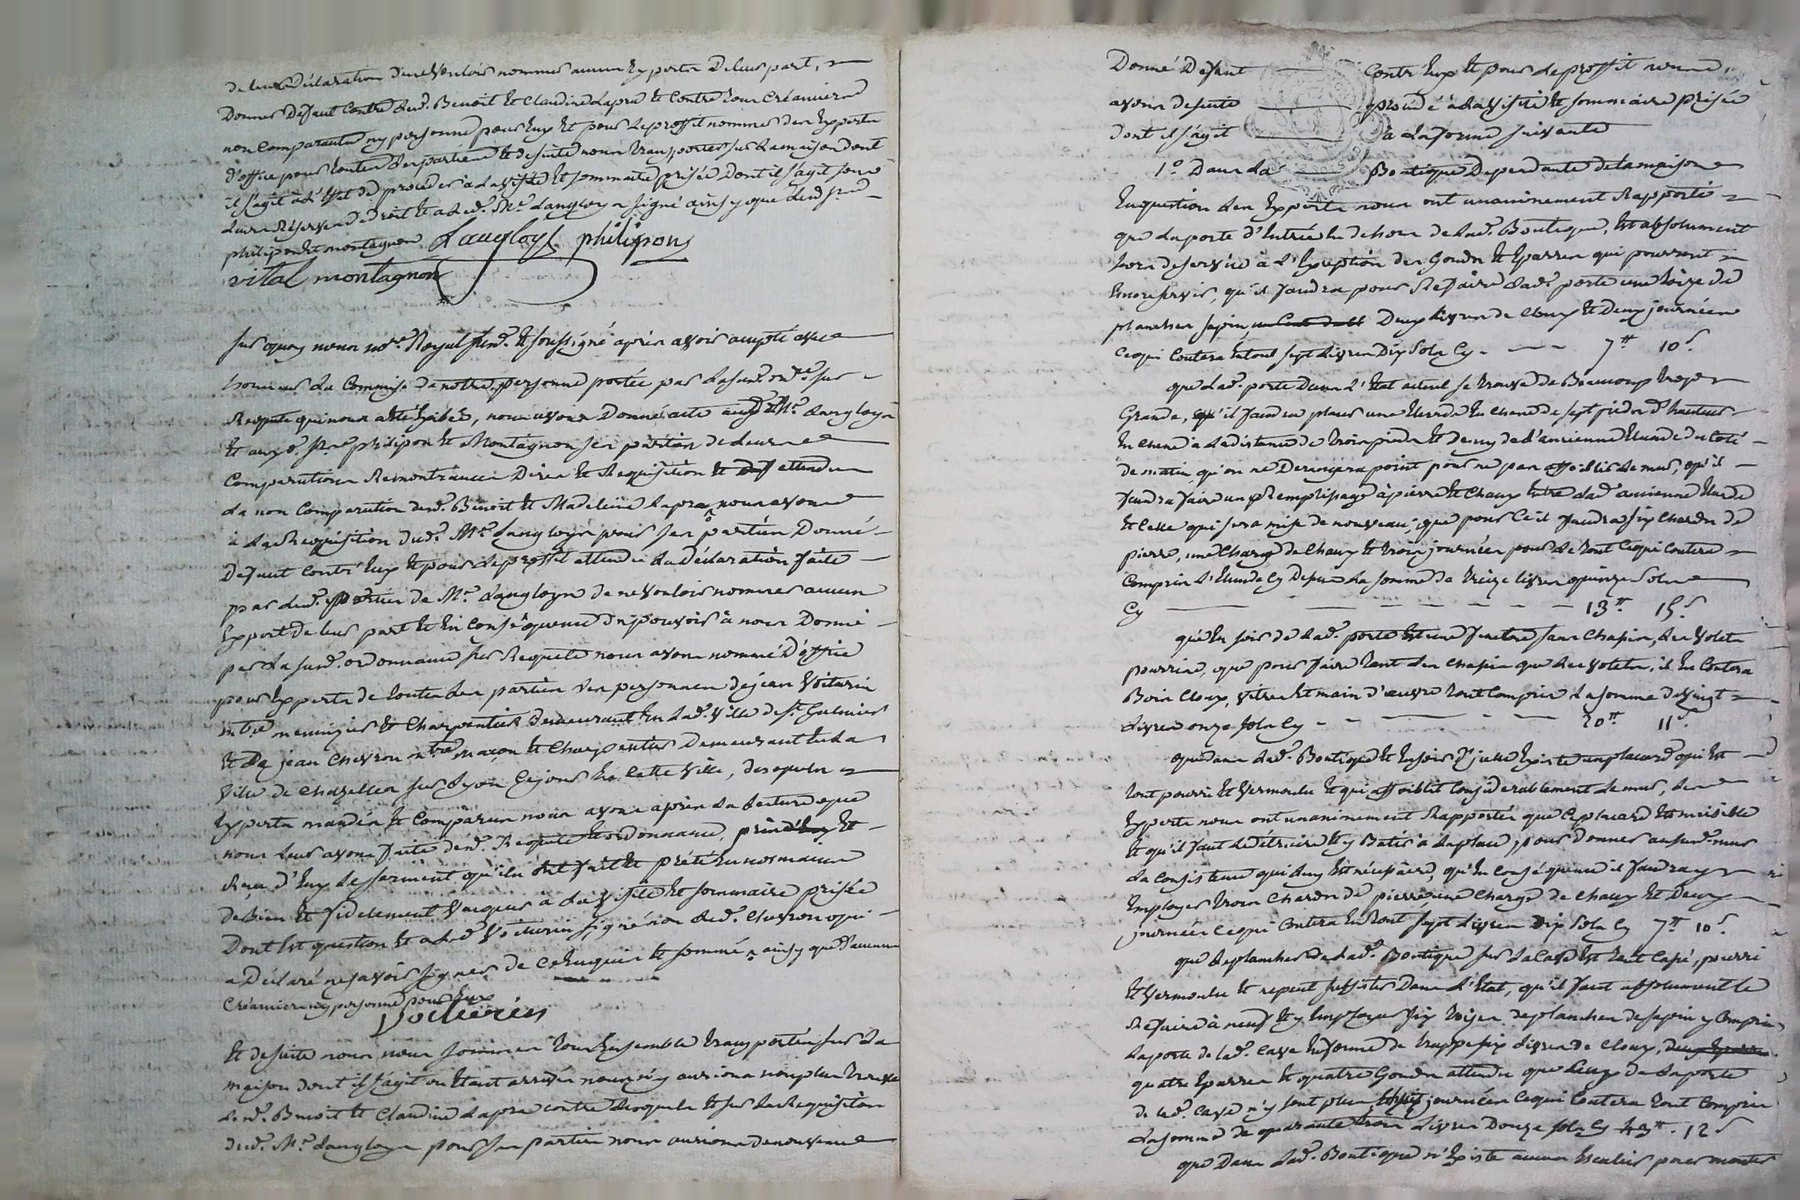 de leur déclaration de ne vouloir nommer aucun Expertz de leur part,
Donner Défaut contre lesd. Benoit et Claudine Lapra et contre tous Créanciers
non comparants ny personne pour Eux Et pour le proffit nommer des Experts
d'office pour toutes les parties et desuite nous transporter sur la maison dont
il s'agit à l'Effet de proceder à la visite Et sommaire prisée Dont il s'agit sous
toutes Réserves de Droit Et a led. Me. Langloys signé ainsy que lesd. srs
philipon Et montagnon Langloys philipon
vital montagnon
sur quoy nous no.re Royal susd. Et soussigné après avoir accepté avec
honneur la Commission de notre personne portée par la susd. ord.ce sur
Requete qui nous a été Exhibée, nous avons Donné acte audt. Me. Langloys
Et auxd. srs philipon Et Montagnon ses parties de leurs
Comparutions Remontrances Dires Et Requisitions Et attendu
la non Comparution desd. Benoit Et Madeleine Lapra nous avons
à la Requisition dud. Me. Langloys pour ses parties Donné
Defaut Contr'Eux Et pour le proffit attendu la Déclaration faite
par lesd. parties de Me. Langloys de ne vouloir nommer aucun
Expert de leur part Et En conséquence du pouvoir à nous Donné
par la susd. ordonnance sur Requete nous avons nommé D'office
pour Experts de toutes les parties les personnes de jean Voiturin
m.tre menuizier Et Charpentier demeurant En lad. ville de St. Galmier
Et de jean Chevron m.tre maçon Et Charpentier Demeurant En la
ville de Chazelles sur Lyon Ce jour En Cette ville, desquels
Experts mandés Et Comparus nous avons après la Lecture que
nous leur avons faite desd. Requete Et ordonnance, pris Et
reçu d'Eux le serment qu'ils ont fait Et prété En nos mains
de Bien Et fidelement vacquer à la visite Et sommaire prisée
Dont Est question Et a led. Voiturin signé non led. Chevron qui
a Déclaré ne savoir signer de ce Enquis Et sommé ainsy que d'aucuns
Créanciers ny personne pour Eux
Voiturin
Et desuite nous nous sommes tous Ensemble transportés sur la
maison dont il s'agit ou Etant arrivés nous n'y aurions non plus trouvé
lesd. Benoit Et Claudine Lapra contre lesquels Et sur la Requisition
dud. Me. Langloys pour ses parties nous aurions de nouveau
Donné Défaut Contr'Eux Et pour le proffit nous
avons desuite procédé à la visite Et sommaire prisée
dont il s'agit En la forme suivante
1.o Dans la Boutique Dependante de la maison
En question les Experts nous ont unanimement Rapporté
que la porte d'Entrée En dehors de lad. Boutique, Est absolument
hors de service à l'Exception des Gonds Et Eparres qui pourront
Encore servir, qu'il faudra pour Refaire lad. porte une toise de
plancher sapin Deux livres de Cloux Et Deux journées
Ce qui Coutera En tout sept Livres Dix Sols Cy - 7tt 10s
que lad. porte Dans l'Etat actuel se trouve de Beaucoup trop
Grande, qu'il faudra placer une Eleude En chene de sept pieds d'hauteur
En chene à la distance de trois pieds Et demy de l'ancienne Eleude du Coté
de matin qu'on ne Derangera point pour ne pas affoiblir le mur, qu'il
faudra faire un Remplissage à pierre Et Chaux Entre lad. ancienne Eleude
Et Celle qui sera mise de nouveau; que pour Ce il faudra six Chards de
pierre, une Charge de Chaux Et trois journées pour le tout Ce qui Coutera
Compris l'Eleude Cy Dessus la somme de treize livres quinze Sols
Cy - 13tt 15s
qu'En soir de lad. porte Est une fenetre sans Chassis, les volets
pourris, que pour faire tant les Chassis que les volets, il En Coutera
Bois Cloux, vitres Et main d'œuvre tout Compris la somme de vingt
livres onze sols Cy - 20tt 11s
que dans lad. Boutique Et En soir d'jcelle Existe un placard qui Est
tout pourri Et vermoulu Et qui affoiblit Considerablement le mur, les
Experts nous ont unanimement Rapporté que Ce placard Est nuisible
Et qu'il faut le détruire Et y Batir à la place, pour Donner aud. mur
la Consistence qui luy Est nécessaire, qu'En Conséquence il faudra y
Employer trois Chards de pierre une Charge de Chaux Et Deux
journées Ce qui Coutera En tout sept livres Dix Sols Cy 7tt 10s
que le plancher de lad. Boutique sur la Cave Est tout Cassé, pourri
Et vermoulu Et ne peut subsister Dans l'Etat, qu'il faut absolument le
Refaire à neuf Et y Employer six toises de plancher de sapin y Compris
la porte de lad. Cave En forme de trappe six livres de Cloux,
quatre Eparres Et quatre Gonds attendu que Ceux de la porte
de lad. Cave n'y sont plus journées Ce qui Coutera tout Compris
la somme de quarante trois livres Douze sols Cy 43tt. 12s
que Dans lad. Boutique n'Existe aucun Escalier pour monter